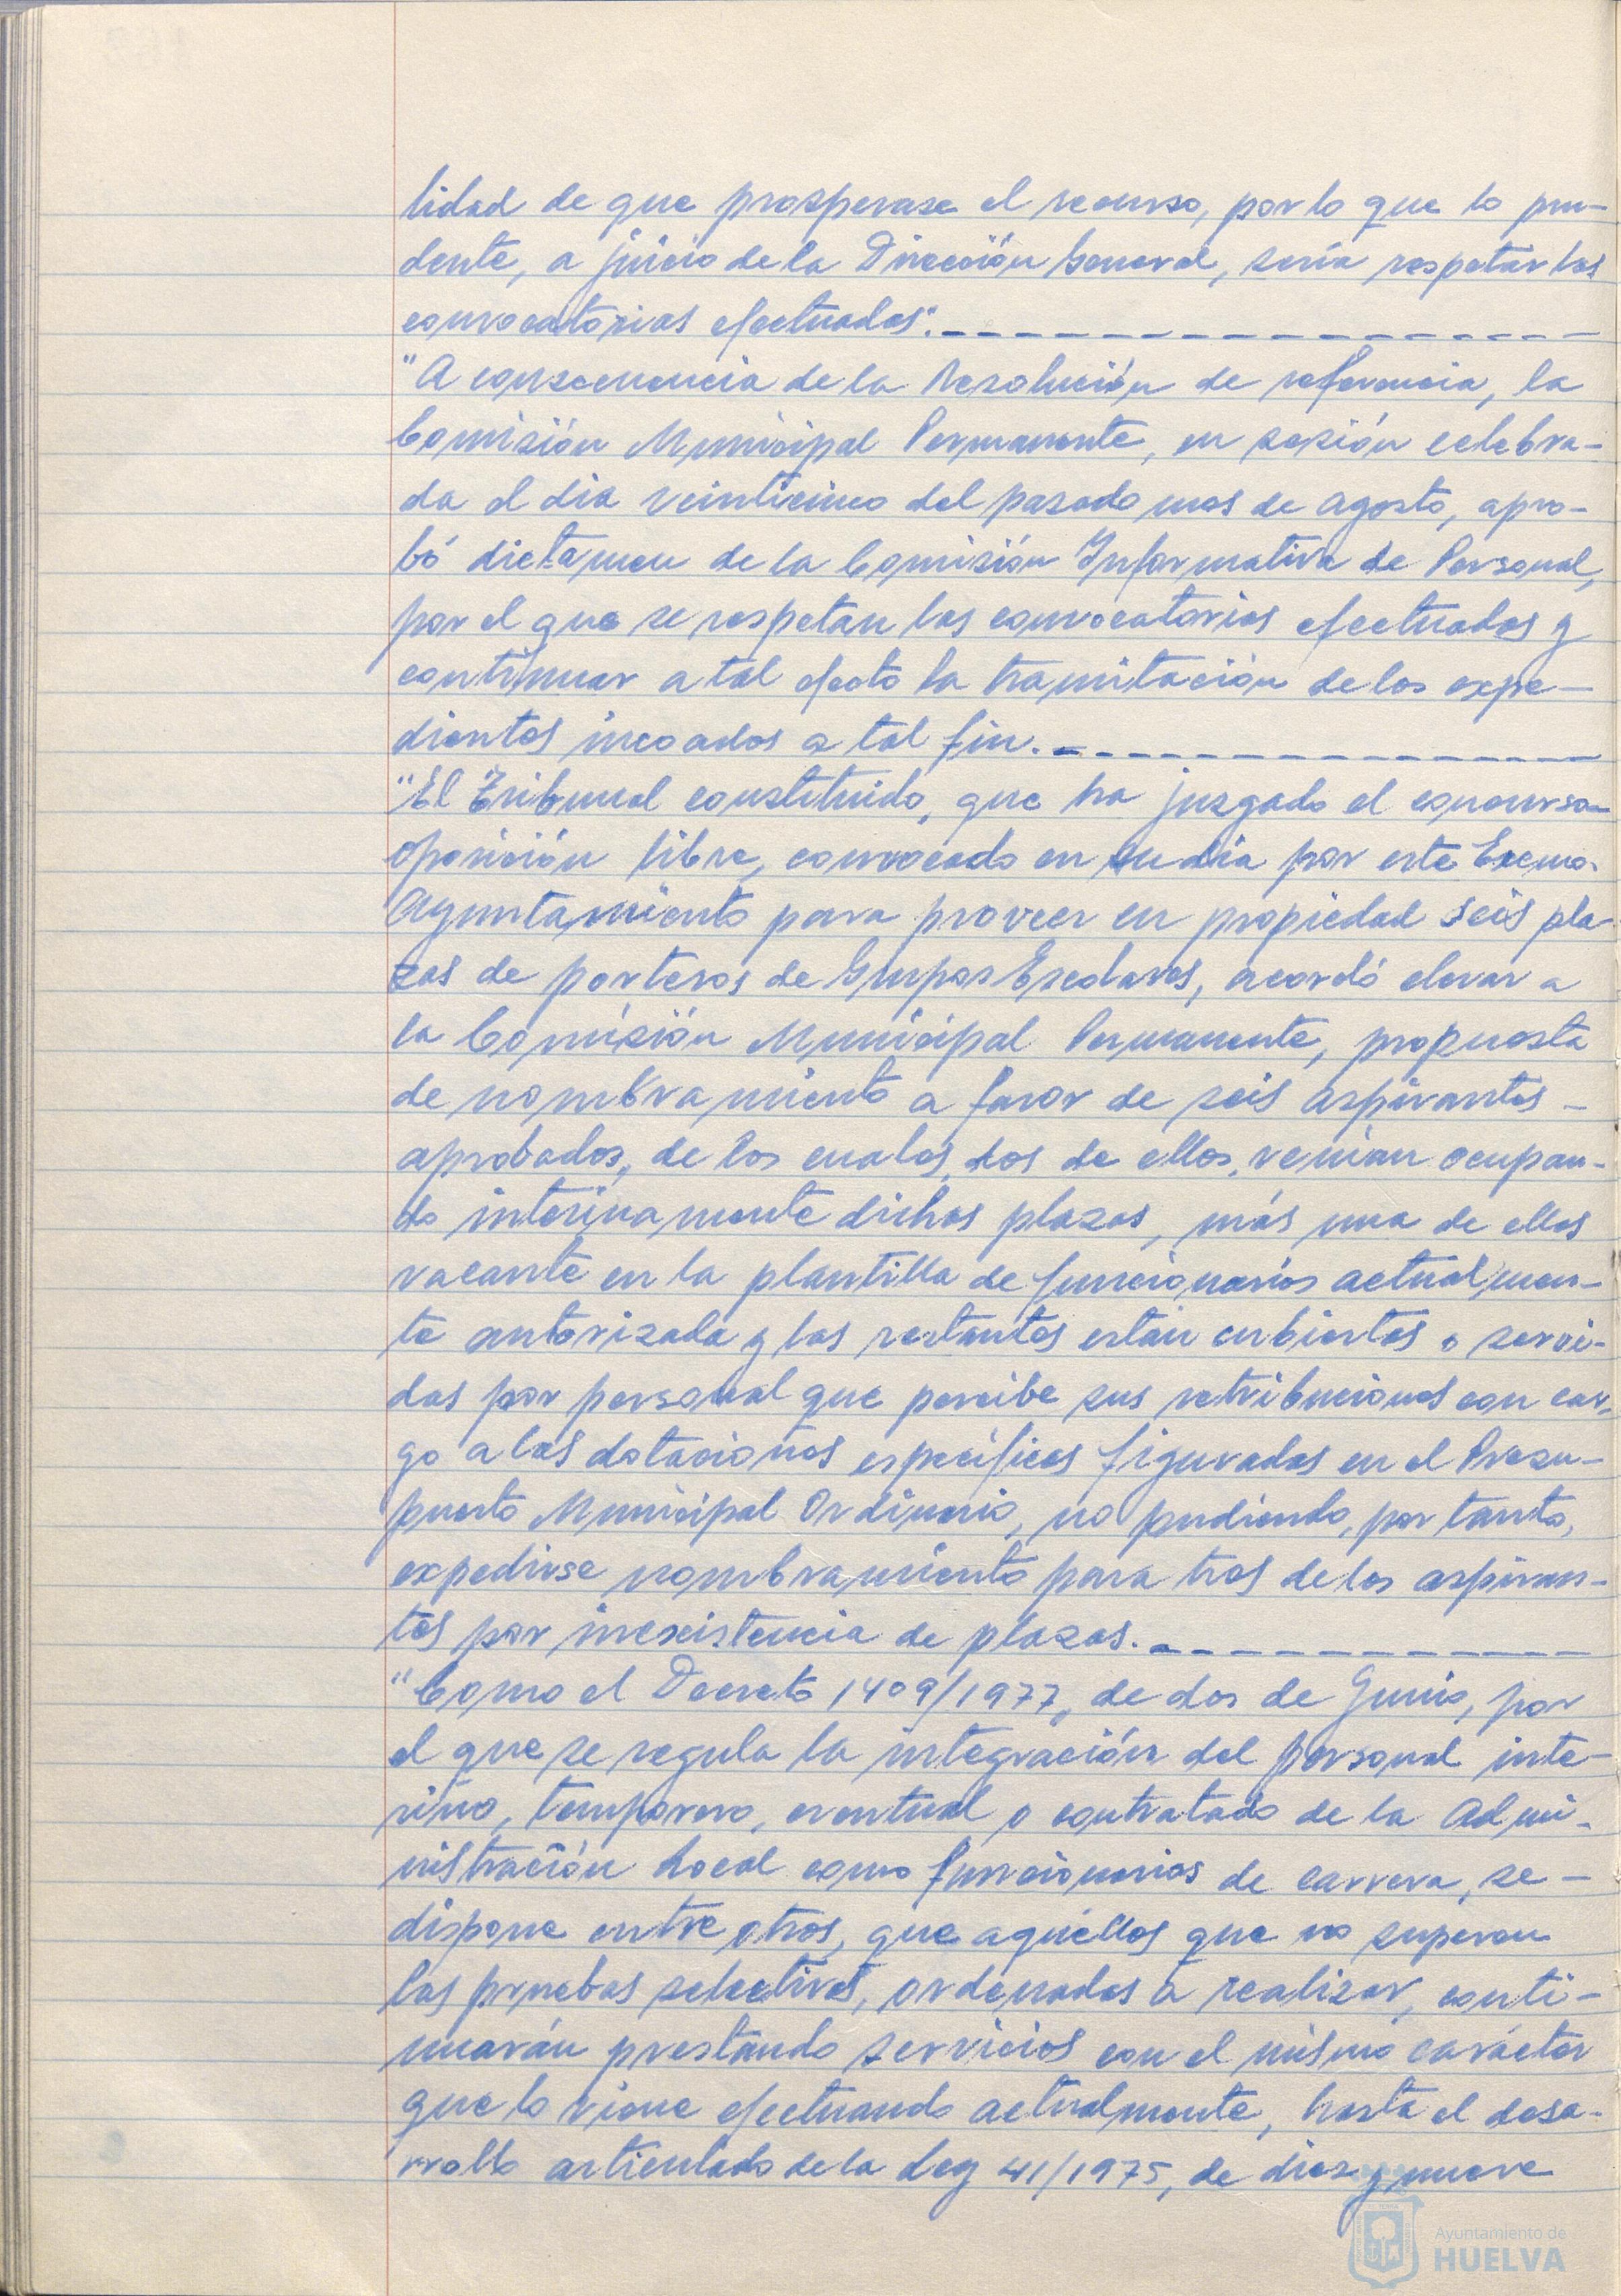 lidad de que prosperase el recurso, por lo que lo pru-
dente, a juicio de la Dirección General, sería respetar las
convocatorias efectuadas".
"A consecuencia de la Resolución de referencia, la
Comisión Municipal Permanente, en sesión celebra-
da el dia veinticinco del pasado mes de agosto, apro-
bó dictamen de la Comisión Informativa de Personal,
por el que se respetan las convocatorias efectuadas y
continuar a tal efecto la tramitación de los expe-
dientes incoados a tal fin.
"El Tribunal constituido, que ha juzgado el concurso-
oposición libre, convocado en su dia por este Excmo.
Ayuntamiento para proveer en propiedad seis pla-
zas de porteros de Grupos Escolares, acordó elevar a
la Comisión Municipal Permanente, propuesta
de nombramiento a favor de seis aspirantes -
aprobados, de los cuales, dos de ellos, venian ocupan-
do interinamente dichas plazas, más una de ellas
vacante en la plantilla de funcionarios actualmen-
te autorizada y las restantes están cubiertas o servi-
das por personal que percibe sus retribuciones con car-
go a las dotaciones específicas figuradas en el Presu-
puesto Municipal Ordinario, no pudiendo, por tanto,
expedirse nombramiento para tres de los aspiran-
tes por inexistencia de plazas.
"Como el Decreto 1409/1977, de dos de Junio, por
el que se regula la integración del personal inte-
rino, temporero, eventual o contratado de la Admi-
nistración Local como funcionarios de carrera, se -
dispone entre otros, que aquéllos que no superen
las pruebas selectivas, ordenadas a realizar, conti-
nuarán prestando servicios con el mismo carácter
que lo viene efectuando actualmente, hasta el desa-
rrollo articulado de la Ley 41/1975, de diez y nueve
Ayuntamiento de
HUELVA